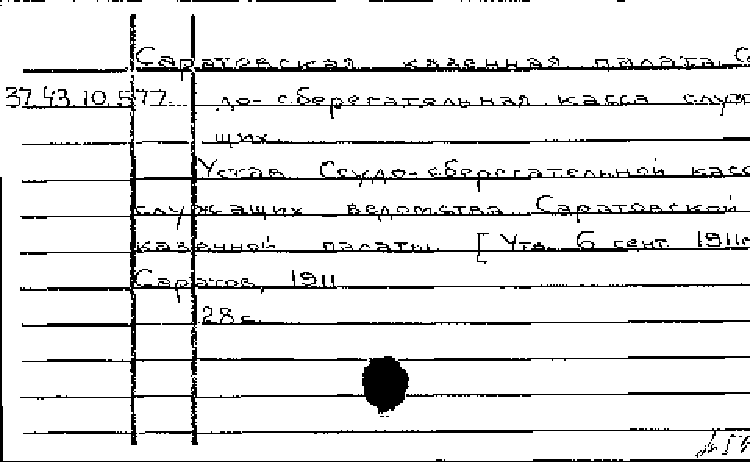 Саратовская казенная палата.
37.43.10.577. до-сберегательная касса
щих.
Устав Ссудо-сберегательной
служащих ведомства Саратовской
казенной палаты. [Утв. 6 сент. 1911
Саратов, 1911
28 с.